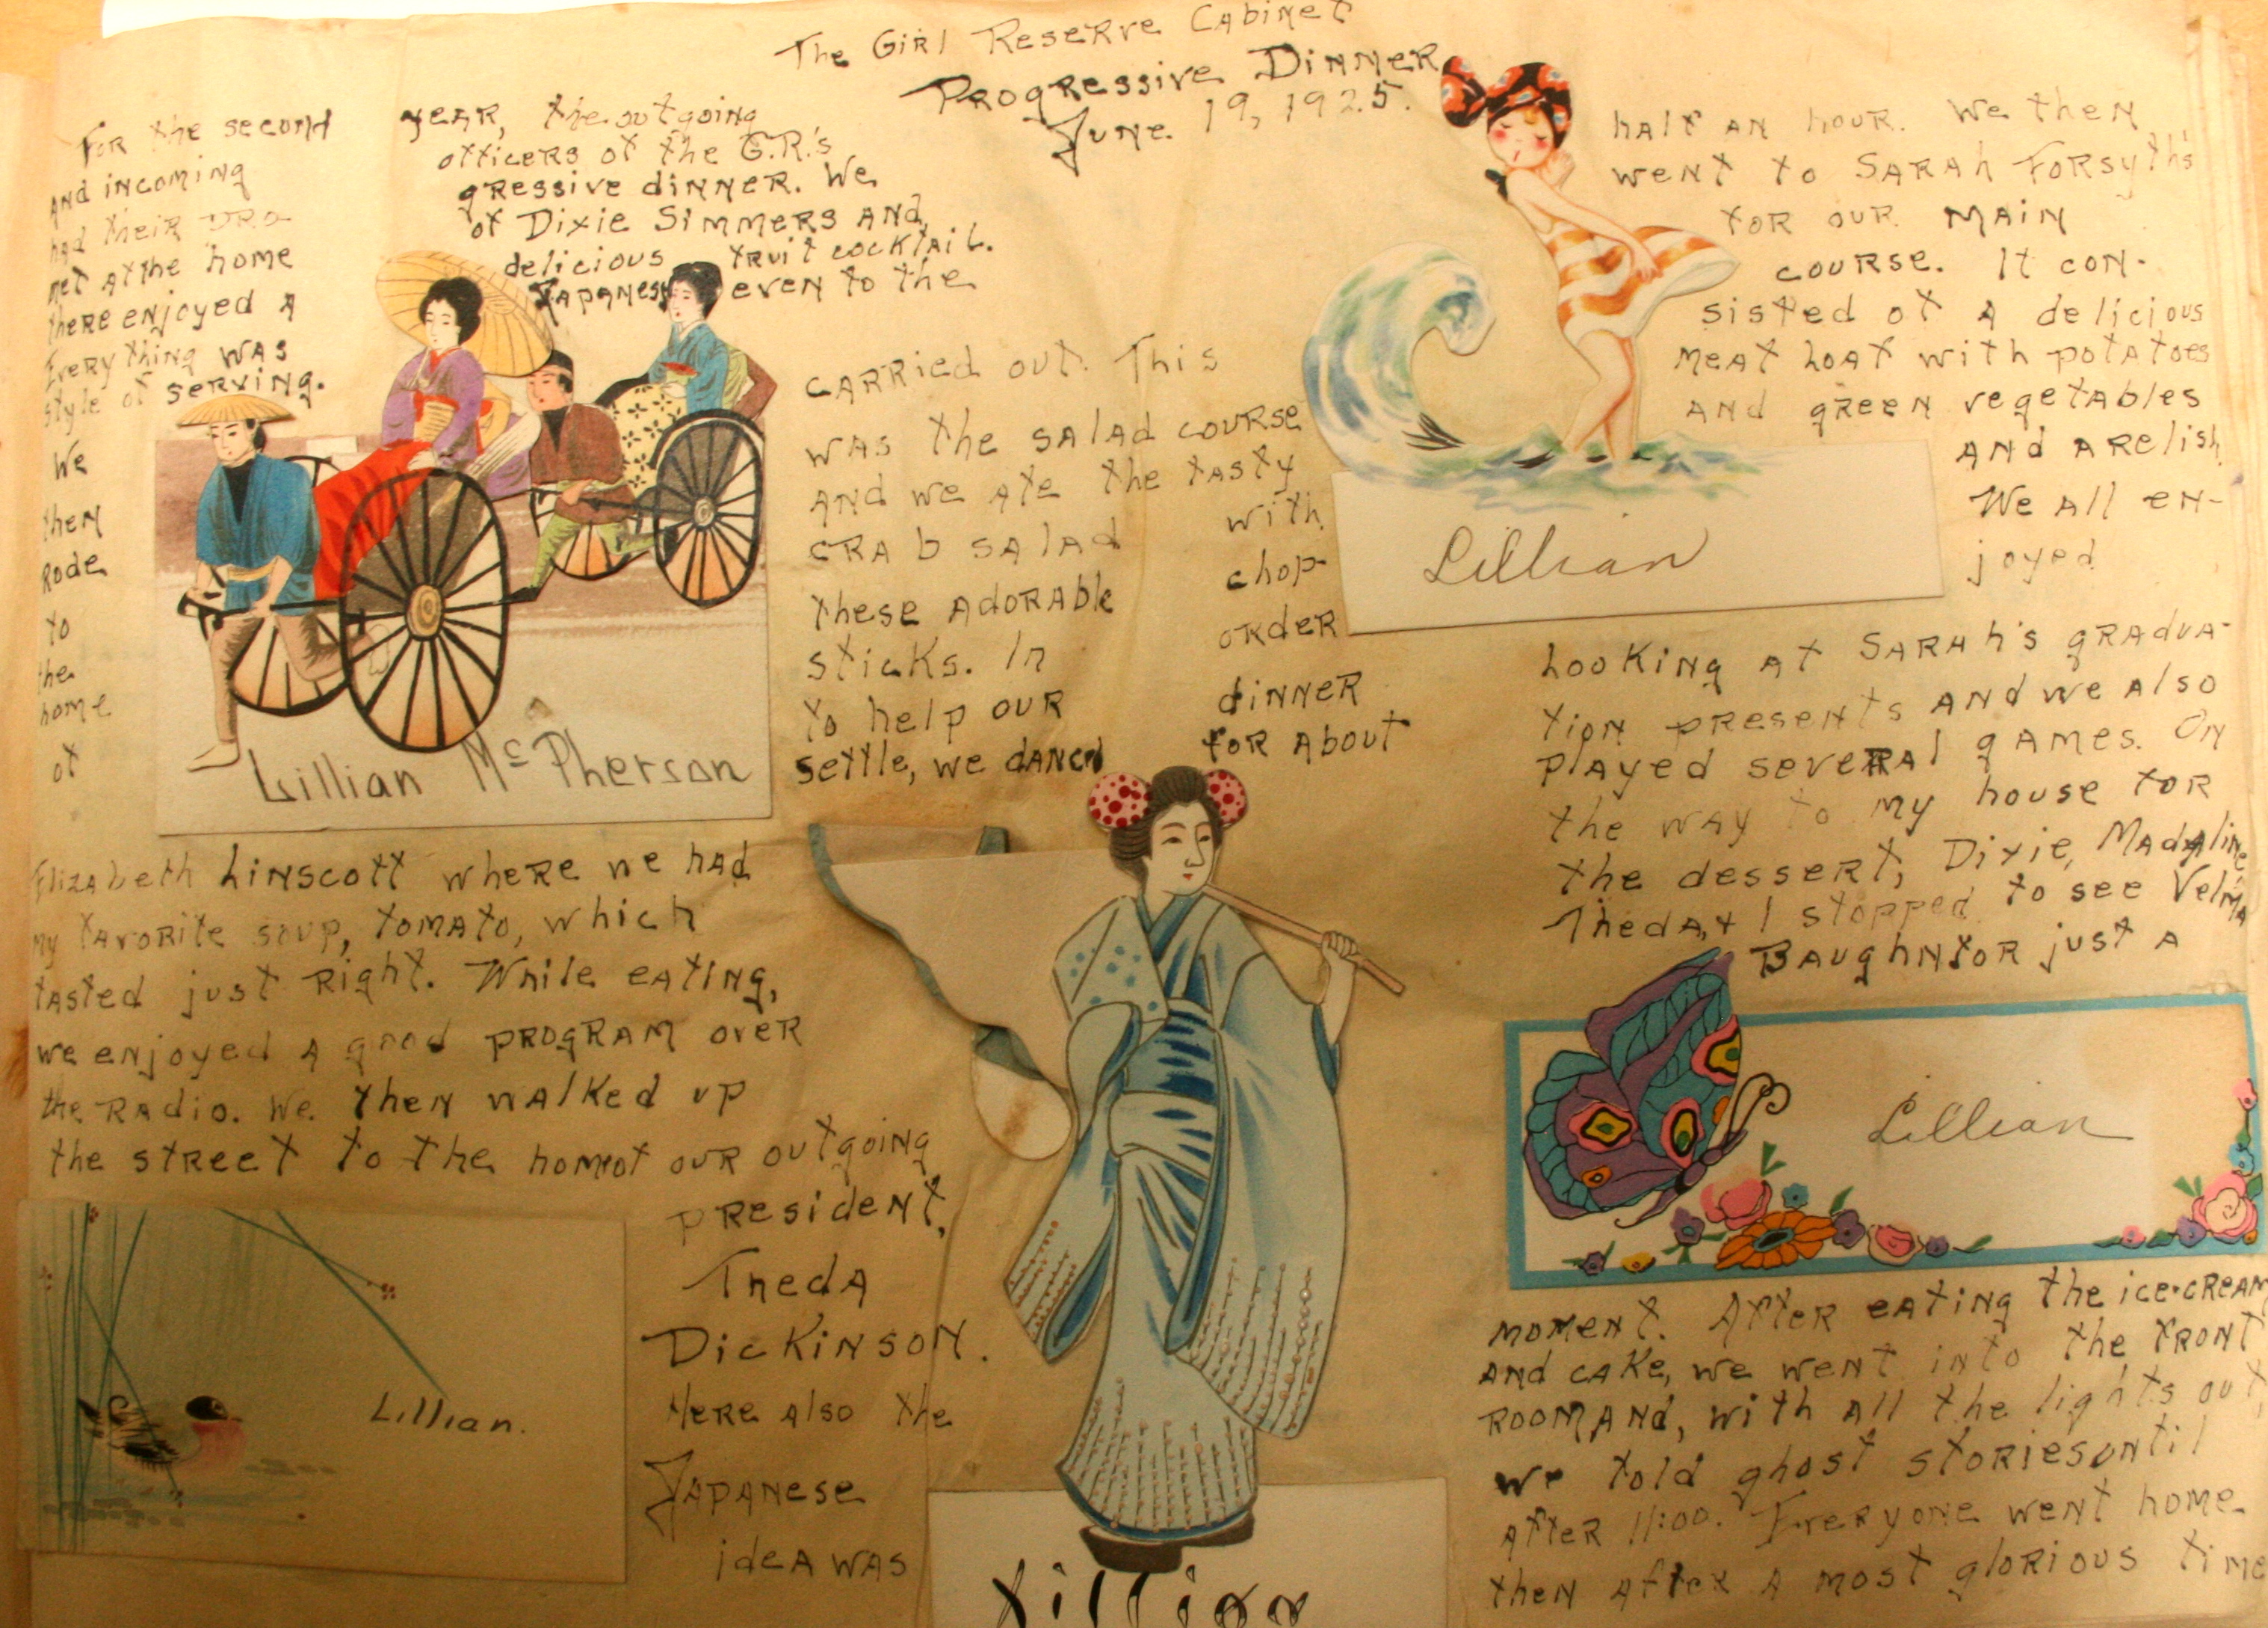 The Girl Reserve Cabinet
Progressive Dinner
June 19, 1925.
For the second year, the outgoing
and incoming officers of the G.R.'s
had their pro- gressive dinner. We
met at the home of Dixie Simmers and
there enjoyed a delicious fruit cocktail.
Every thing was Japanese even to the
style of serving.
We
then
Rode
to
the
home
of
Lillian McPherson
Elizabeth Linscott where we had
my favorite soup, tomato, which
tasted just right. While eating,
we enjoyed a good program over
the Radio. We then walked up
the street to the home of our outgoing
president,
Theda
Dickinson.
Here also the
Japanese
idea was
Lillian.
carried out. This
was the salad course
and we ate the tasty
crab salad with
these adorable chop-
sticks. In order
to help our dinner
settle, we danced for about
Lillian
half an hour. We then
went to Sarah Forsyth's
for our main
course. It con-
sisted of a delicious
meat loaf with potatoes
and green vegetables
and a relish.
We all en-
joyed
Lillian
looking at Sarah's gradua-
tion presents and we also
played several games. On
the way to my house for
the dessert, Dixie, Madaline,
Theda, & I stopped to see Velma
Baughn for just a
Lillian
moment. After eating the ice-cream
and cake, we went into the front
room and, with all the lights out,
we told ghost stories until
after 11:00. Everyone went home
then after a most glorious time